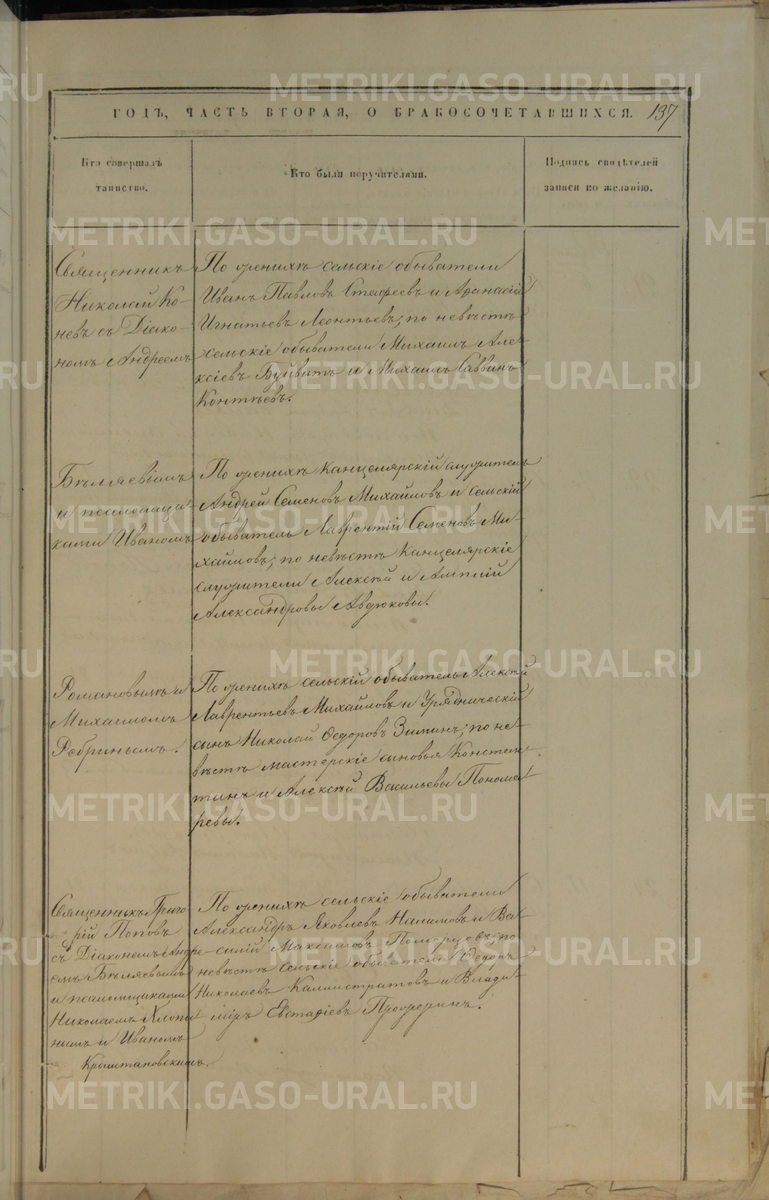 ГОДЪ, ЧАСТЬ ВТОРАЯ, О БРАКОСОЧЕТАВШИХСЯ. 137
Кто совершалъ
таинство.
Кто были поручителями.
Подпись свидѣтелей
записи по желанію.
Священникъ
Николай Ко-
невъ съ Діако-
номъ Андреемъ
По женихѣ сельскіе обыватели
Иванъ Павловъ Стафеевъ и Аѳанасій
Игнатьевъ Леонтьевъ; по невѣстѣ
сельскіе обыватели Михаилъ Але-
ксіевъ и Михаилъ Саввинъ
Контѣевъ.
Бѣляевымъ
и псаломщи-
ками Иваномъ
По женихѣ Канцелярскій служитель
Андрей Семеновъ Михайловъ и сельскій
обыватель Лаврентій Семеновъ Ми-
хайловъ; по невѣстѣ Канцелярскіе
служители Алексѣй и
Александровы Авдюковы.
Романовымъ и
Михаиломъ
Ребринымъ.
По женихѣ сельскій обыватель Алексѣй
Лаврентьевъ Михайловъ и Урядническій
сынъ Николай Ѳедоровъ Зыминъ; по не-
вѣстѣ мастерскіе сыновья Констан-
тинъ и Алексѣй Васильевы Понома-
ревы.
Священникъ Григо-
рій Поповъ
съ Діакономъ Андре-
емъ Бѣляевымъ
и псаломщиками
Николаемъ
нымъ и Иваномъ
Крыштановскимъ.
По женихѣ сельскіе обыватели
Александръ Яковлевъ Налимовъ и Ва-
силій Максимовъ по
невѣстѣ сельскіе обыватели Ѳедоръ
Николаевъ Калистратовъ и Влади-
міръ Евстафіевъ
METRIKI.GASO-URAL.RU